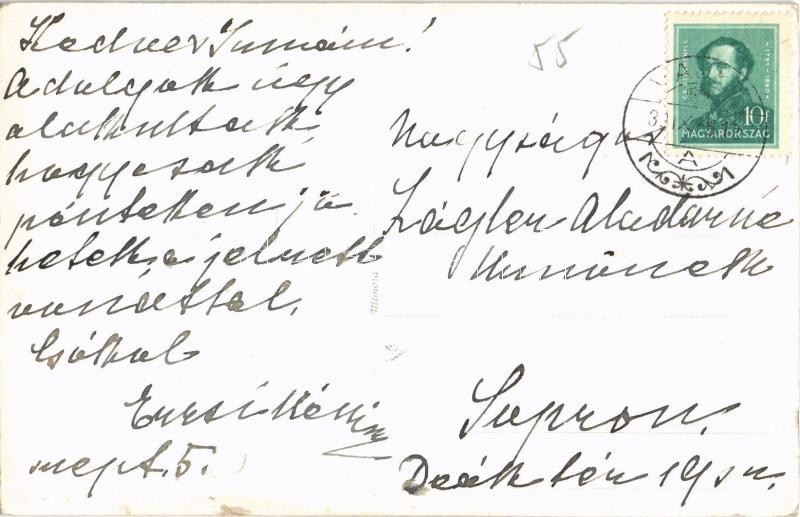 Kedves Irmám!
A dolgok úgy
alakultak
hogy csak
pénteken jö
hetek a jelzett
vonattal.
Csókol
Erzsi
szept. 5.
55
10f
MAGYARORSZÁG
Nagysága
Zágler Aladárné
Urnőnek
Sopron.
Deák tér 19 sz.